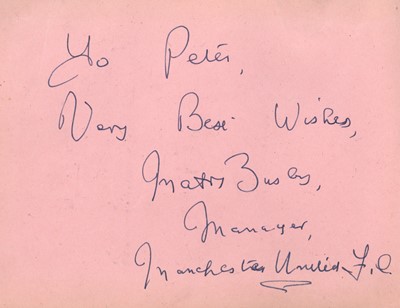 To Peter,
Very Best Wishes,
Matt Busby,
Manager,
Manchester United F.C